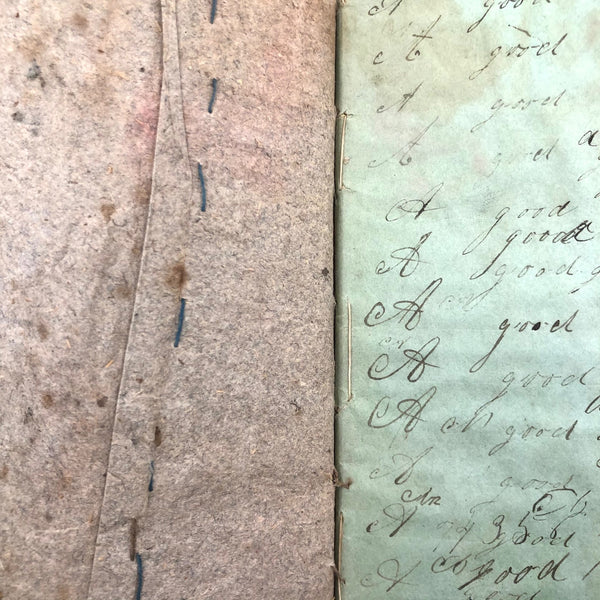 A good
A good
A good
A good
A good
good
A good
A good
A good
A good
A
An
A good
A good